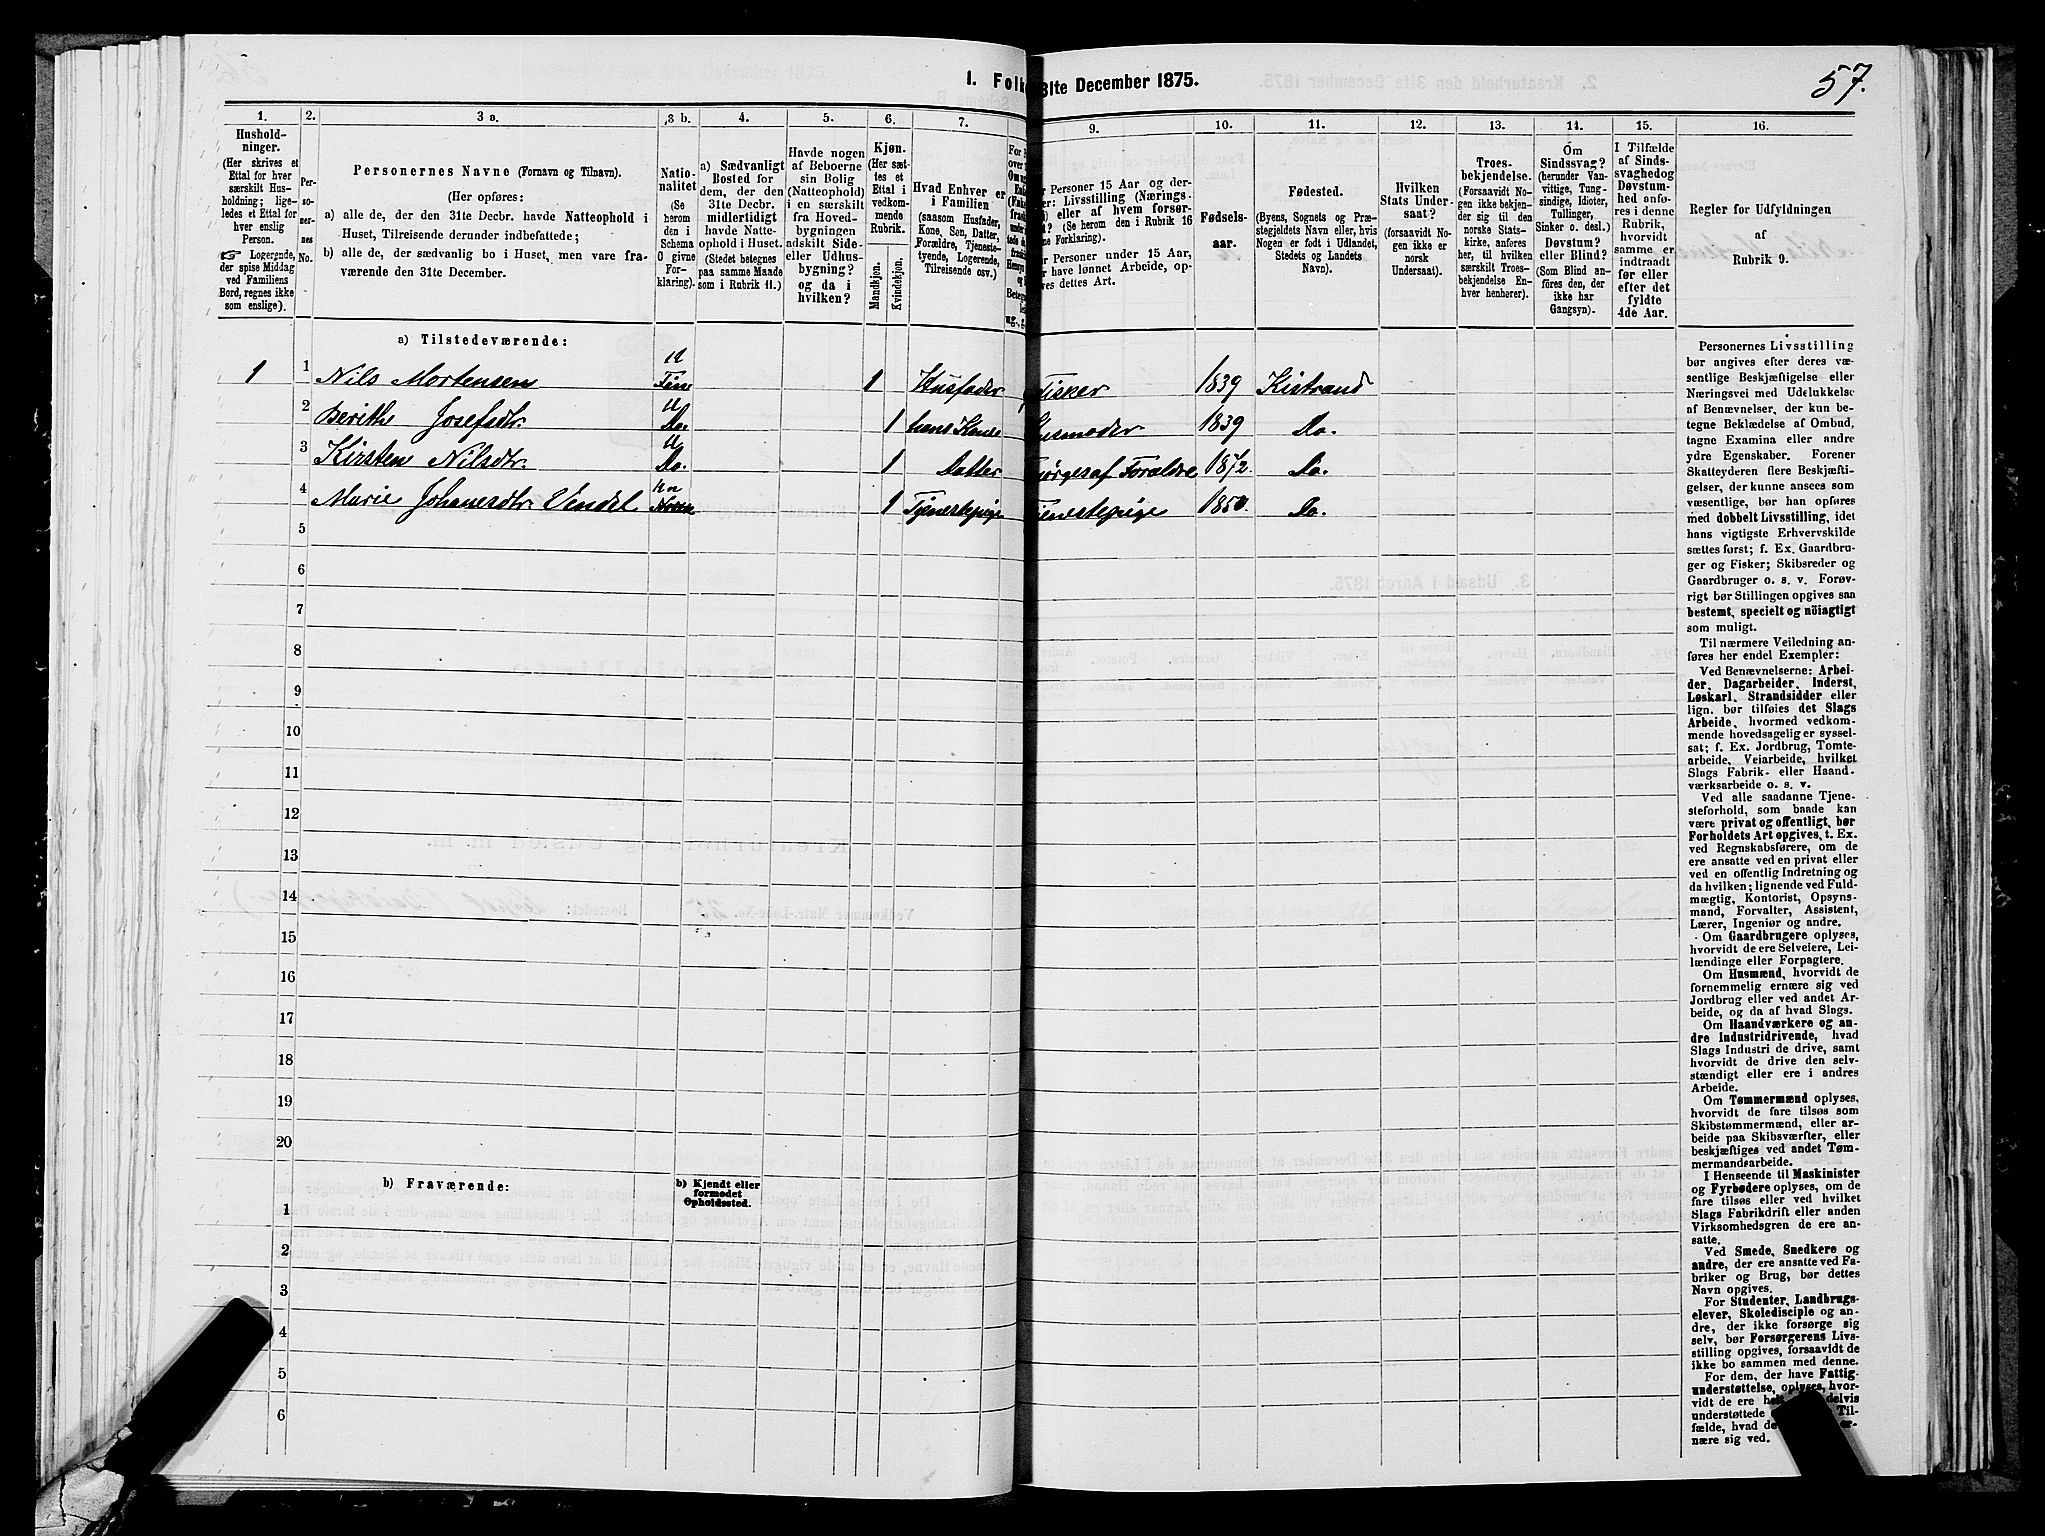 57.
I. Folk 31te December 1875.
1. 2. 3 a. 3 b. 4. 5. 6. 7. 9. 10. 11. 12. 13. 14. 15. 16.
Hushold-
ninger.
(Her skrives et
Ettal for hver
særskilt Hus-
holdning; lige-
ledes et Ettal for
hver enslig
Person.
☞ Logerende,
der spise Middag
ved Familiens
Bord, regnes ikke
som enslige).
Per-
so-
ner-
nes
No.
Personernes Navne (Fornavn og Tilnavn).
(Her opføres:
a) alle de, der den 31te Decbr. havde Natteophold i
Huset, Tilreisende derunder indbefattede;
b) alle de, der sædvanlig bo i Huset, men vare fra-
værende den 31te December.
Natio-
nalitet
(Se
herom
den i
Schema
O givne
For-
klaring).
a) Sædvanligt
Bosted for
dem, der den
31te Decbr.
midlertidigt
havde Natte-
ophold i Huset.
(Stedet betegnes
paa samme Maade
som i Rubrik 11.)
Havde nogen
af Beboerne
sin Bolig
(Natteophold)
i en særskilt
fra Hoved-
bygningen
adskilt Side-
eller Udhus-
bygning?
og da i
hvilken?
Kjøn.
(Her sæt-
tes et
Ettal i
vedkom-
mende
Rubrik.
Mandkjøn.
Kvindekjøn.
Hvad Enhver er
i Familien
(saasom Husfader,
Kone, Søn, Datter,
Forældre, Tjeneste-
tyende, Logerende,
Tilreisende osv.)
Personer 15 Aar og der-
Livsstilling (Nærings-
eller af hvem forsør-
(Se herom den i Rubrik 16
Forklaring).
Personer under 15 Aar,
have lønnet Arbeide, op-
dettes Art.
Fødsels-
aar.
Fødested.
(Byens, Sognets og Præ-
stegjeldets Navn eller, hvis
Nogen er født i Udlandet,
Stedets og Landets
Navn).
Hvilken
Stats Under-
saat?
(forsaavidt No-
gen ikke er
norsk
Undersaat).
Troes-
bekjendelse.
(Forsaavidt No-
gen ikke bekjen-
der sig til den
norske Stats-
kirke, anføres
her, til hvilken
særskilt Troes-
bekjendelse En-
hver henhører).
Om
Sindssvag?
(herunder Van-
vittige, Tung-
sindige, Idioter,
Tullinger,
Sinker o. desl.)
Døvstum?
eller Blind?
(Som Blind an-
føres den, der
ikke har
Gangsyn).
I Tilfælde
af Sinds-
svaghed og
Døvstum-
hed anfø-
res i denne
Rubrik,
hvorvidt
samme er
indtraadt
før eller
efter det
fyldte
4de Aar.
Regler for Udfyldningen
af
Rubrik 9.
a) Tilstedeværende:
1 1 Nils Mortensen Fin 1 Husfader Fisker 1839 Kistrand
2 Berithe Josefsdtr. Do. 1 hans Kone Husmoder 1839 Do.
3 Kirsten Nilsdtr. Do. 1 Datter Forældre 1872. Do.
4 Marie Johanesdtr. Vendel Norsk 1 Tjenestepige Tjenestepige Do.
5
6
7
8
9
10
11
12
13
14
15
16
17
18
19
20
b) Fraværende:
b) Kjendt eller
formodet
Opholdssted.
1
2
3
4
5
6
Personernes Livsstilling
bør angives efter deres væ-
sentlige Beskjæftigelse eller
Næringsvei med Udelukkelse
af Benævnelser, der kun be-
tegne Beklædelse af Ombud,
tagne Examina eller andre
ydre Egenskaber. Forener
Skatteyderen flere Beskjæfti-
gelser, der kunne ansees som
væsentlige, bør han opføres
med dobbelt Livsstilling, idet
hans vigtigste Erhvervskilde
sættes først; f. Ex. Gaardbru-
ger og Fisker; Skibsreder og
Gaardbruger o. s. v. Forøv-
rigt bør Stillingen opgives saa
bestemt, specielt og nöiagtigt
som muligt.
Til nærmere Veiledning an-
føres her endel Exempler:
Ved Benævnelserne: Arbei-
der, Dagarbeider, Inderst,
Løskarl, Strandsidder eller
lign. bør tilføies det Slags
Arbeide, hvormed vedkom-
mende hovedsagelig er syssel-
sat; f. Ex. Jordbrug, Tomte-
arbeide, Veiarbeide, hvilket
Slags Fabrik- eller Haand-
værksarbeide o. s. v.
Ved alle saadanne Tjene-
steforhold, som baade kan
være privat og offentligt, bør
Forholdets Art opgives, t. Ex.
ved Regnskabsførere, om de
ere ansatte ved en privat eller
ved en offentlig Indretning og
da hvilken; lignende ved Fuld-
mægtig, Kontorist, Opsyns-
mand, Forvalter, Assistent,
Lærer, Ingeniør og andre.
Om Gaardbrugere oplyses,
hvorvidt de ere Selveiere, Lei-
lændinge eller Forpagtere.
Om Husmænd, hvorvidt de
fornemmelig ernære sig ved
Jordbrug eller ved andet Ar-
beide, og da af hvad Slags.
Om Haandværkere og an-
dre Industridrivende, hvad
Slags Industri de drive, samt
hvorvidt de drive den selv-
stændigt eller ere i andres
Arbeide.
Om Tømmermænd oplyses,
hvorvidt de fare tilsøs som
Skibstømmermænd, eller ar-
beide paa Skibsværfter, eller
beskjæftiges ved andet Tøm-
mermandsarbeide.
I Henseende til Maskinister
og Fyrbødere oplyses, om de
fare tilsøs eller ved hvilket
Slags Fabrikdrift eller anden
Virksomhedsgren de ere an-
satte.
Ved Smede, Snedkere og
andre, der ere ansatte ved Fa-
briker og Brug, bør dettes
Navn opgives.
For Studenter, Landbrugs-
elever, Skoledisciple og an-
dre, der ikke forsørge sig
selv, bør Forsørgerens Livs-
stilling opgives, forsaavidt de
ikke bo sammen med denne.
For dem, der have Fattig-
understøttelse, oplyses, hvor-
vidt de ere delvis
understøttede Til-
fælde, hvad de er-
nære sig ved.